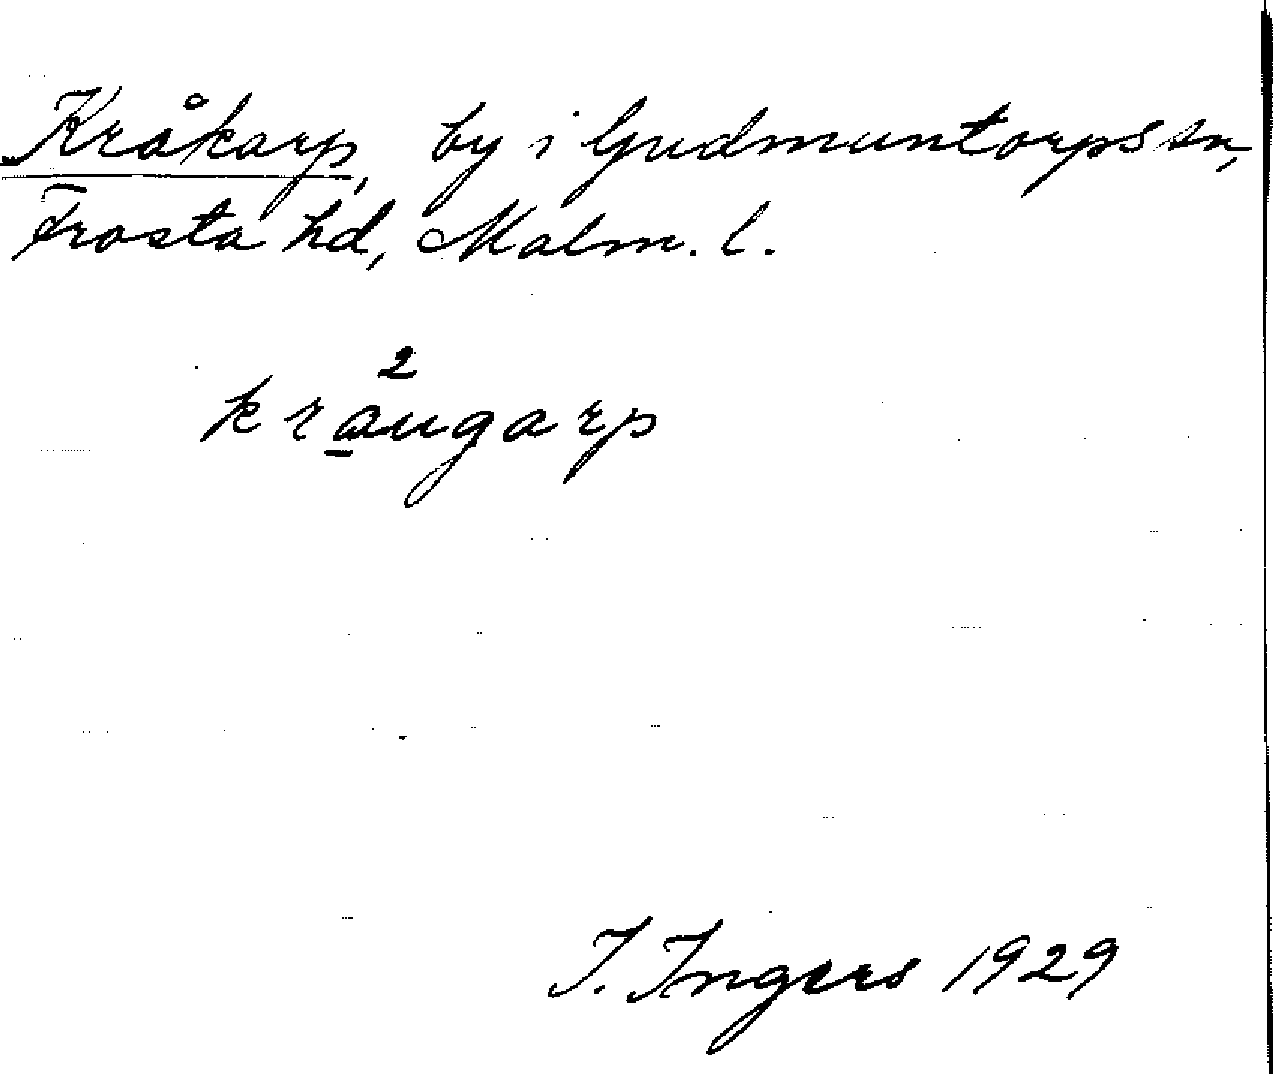 Kråkarp, by i Gudmuntorps sn,
Frosta hd, Malm. l.
2
kra̱ugarp
I. Ingers 1929